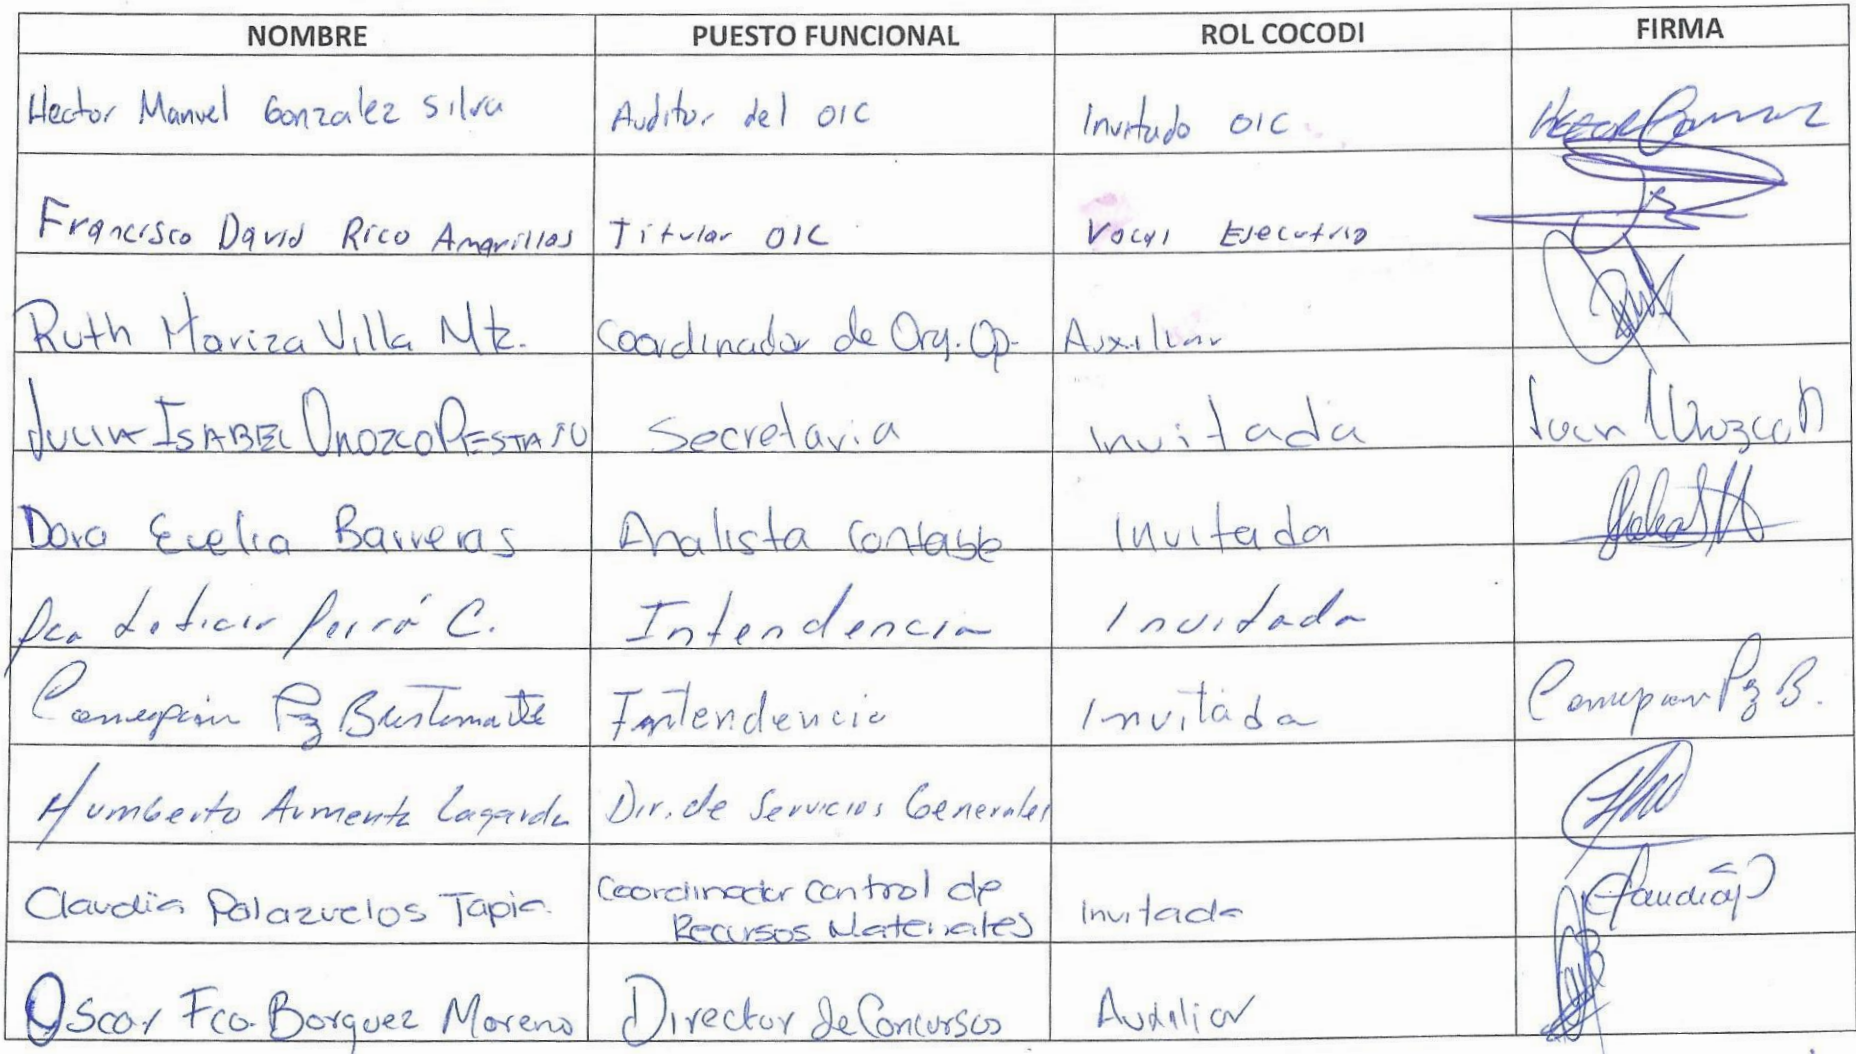 NOMBRE PUESTO FUNCIONAL ROL COCODI FIRMA
Hector Manuel Gonzalez Silva Auditor del OIC Invitado OIC
Francisco David Rico Amarillas Titular OIC Vocal Ejecutivo
Ruth Mariza Villa Mtz. Coordinador de Org. Op. Auxiliar
Isabel Orozco Secretaria Invitada
Dora Evelia Barreras Analista Contable Invitada
Leticia C. Intendencia Invitada
Pz Bustamante Intendencia Invitada Pz B.
Humberto Armenta Lagarda Dir. de Servicios Generales
Claudia Palazuelos Tapia Coordinador Control de Invitada Claudia P
Recursos Materiales
Oscar Fco. Borquez Moreno Director de Concursos Auxiliar